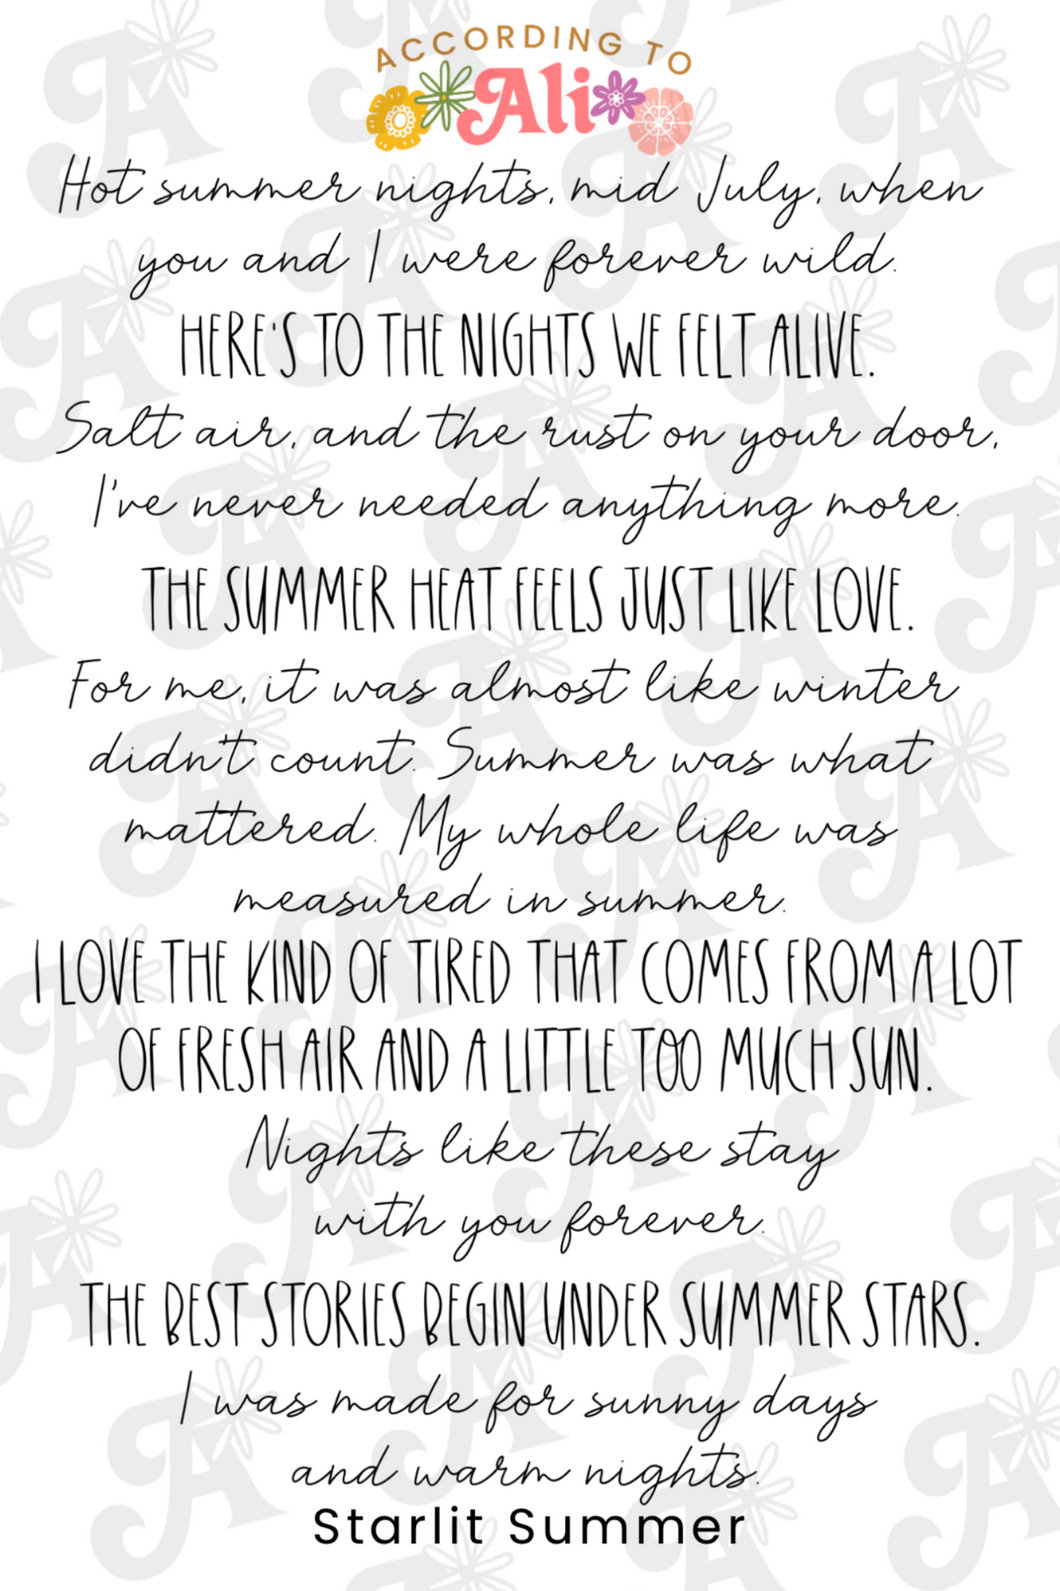 ACCORDING TO
Ali
Hot summer nights, mid July, when
you and I were forever wild.
HERE'S TO THE NIGHTS WE FELT ALIVE.
Salt air, and the rust on your door,
I've never needed anything more.
THE SUMMER HEAT FEELS JUST LIKE LOVE.
For me, it was almost like winter
didn't count. Summer was what
mattered. My whole life was
measured in summer.
I LOVE THE KIND OF TIRED THAT COMES FROM A LOT
OF FRESH AIR AND A LITTLE TOO MUCH SUN.
Nights like these stay
with you forever.
THE BEST STORIES BEGIN UNDER SUMMER STARS.
I was made for sunny days
and warm nights.
Starlit Summer